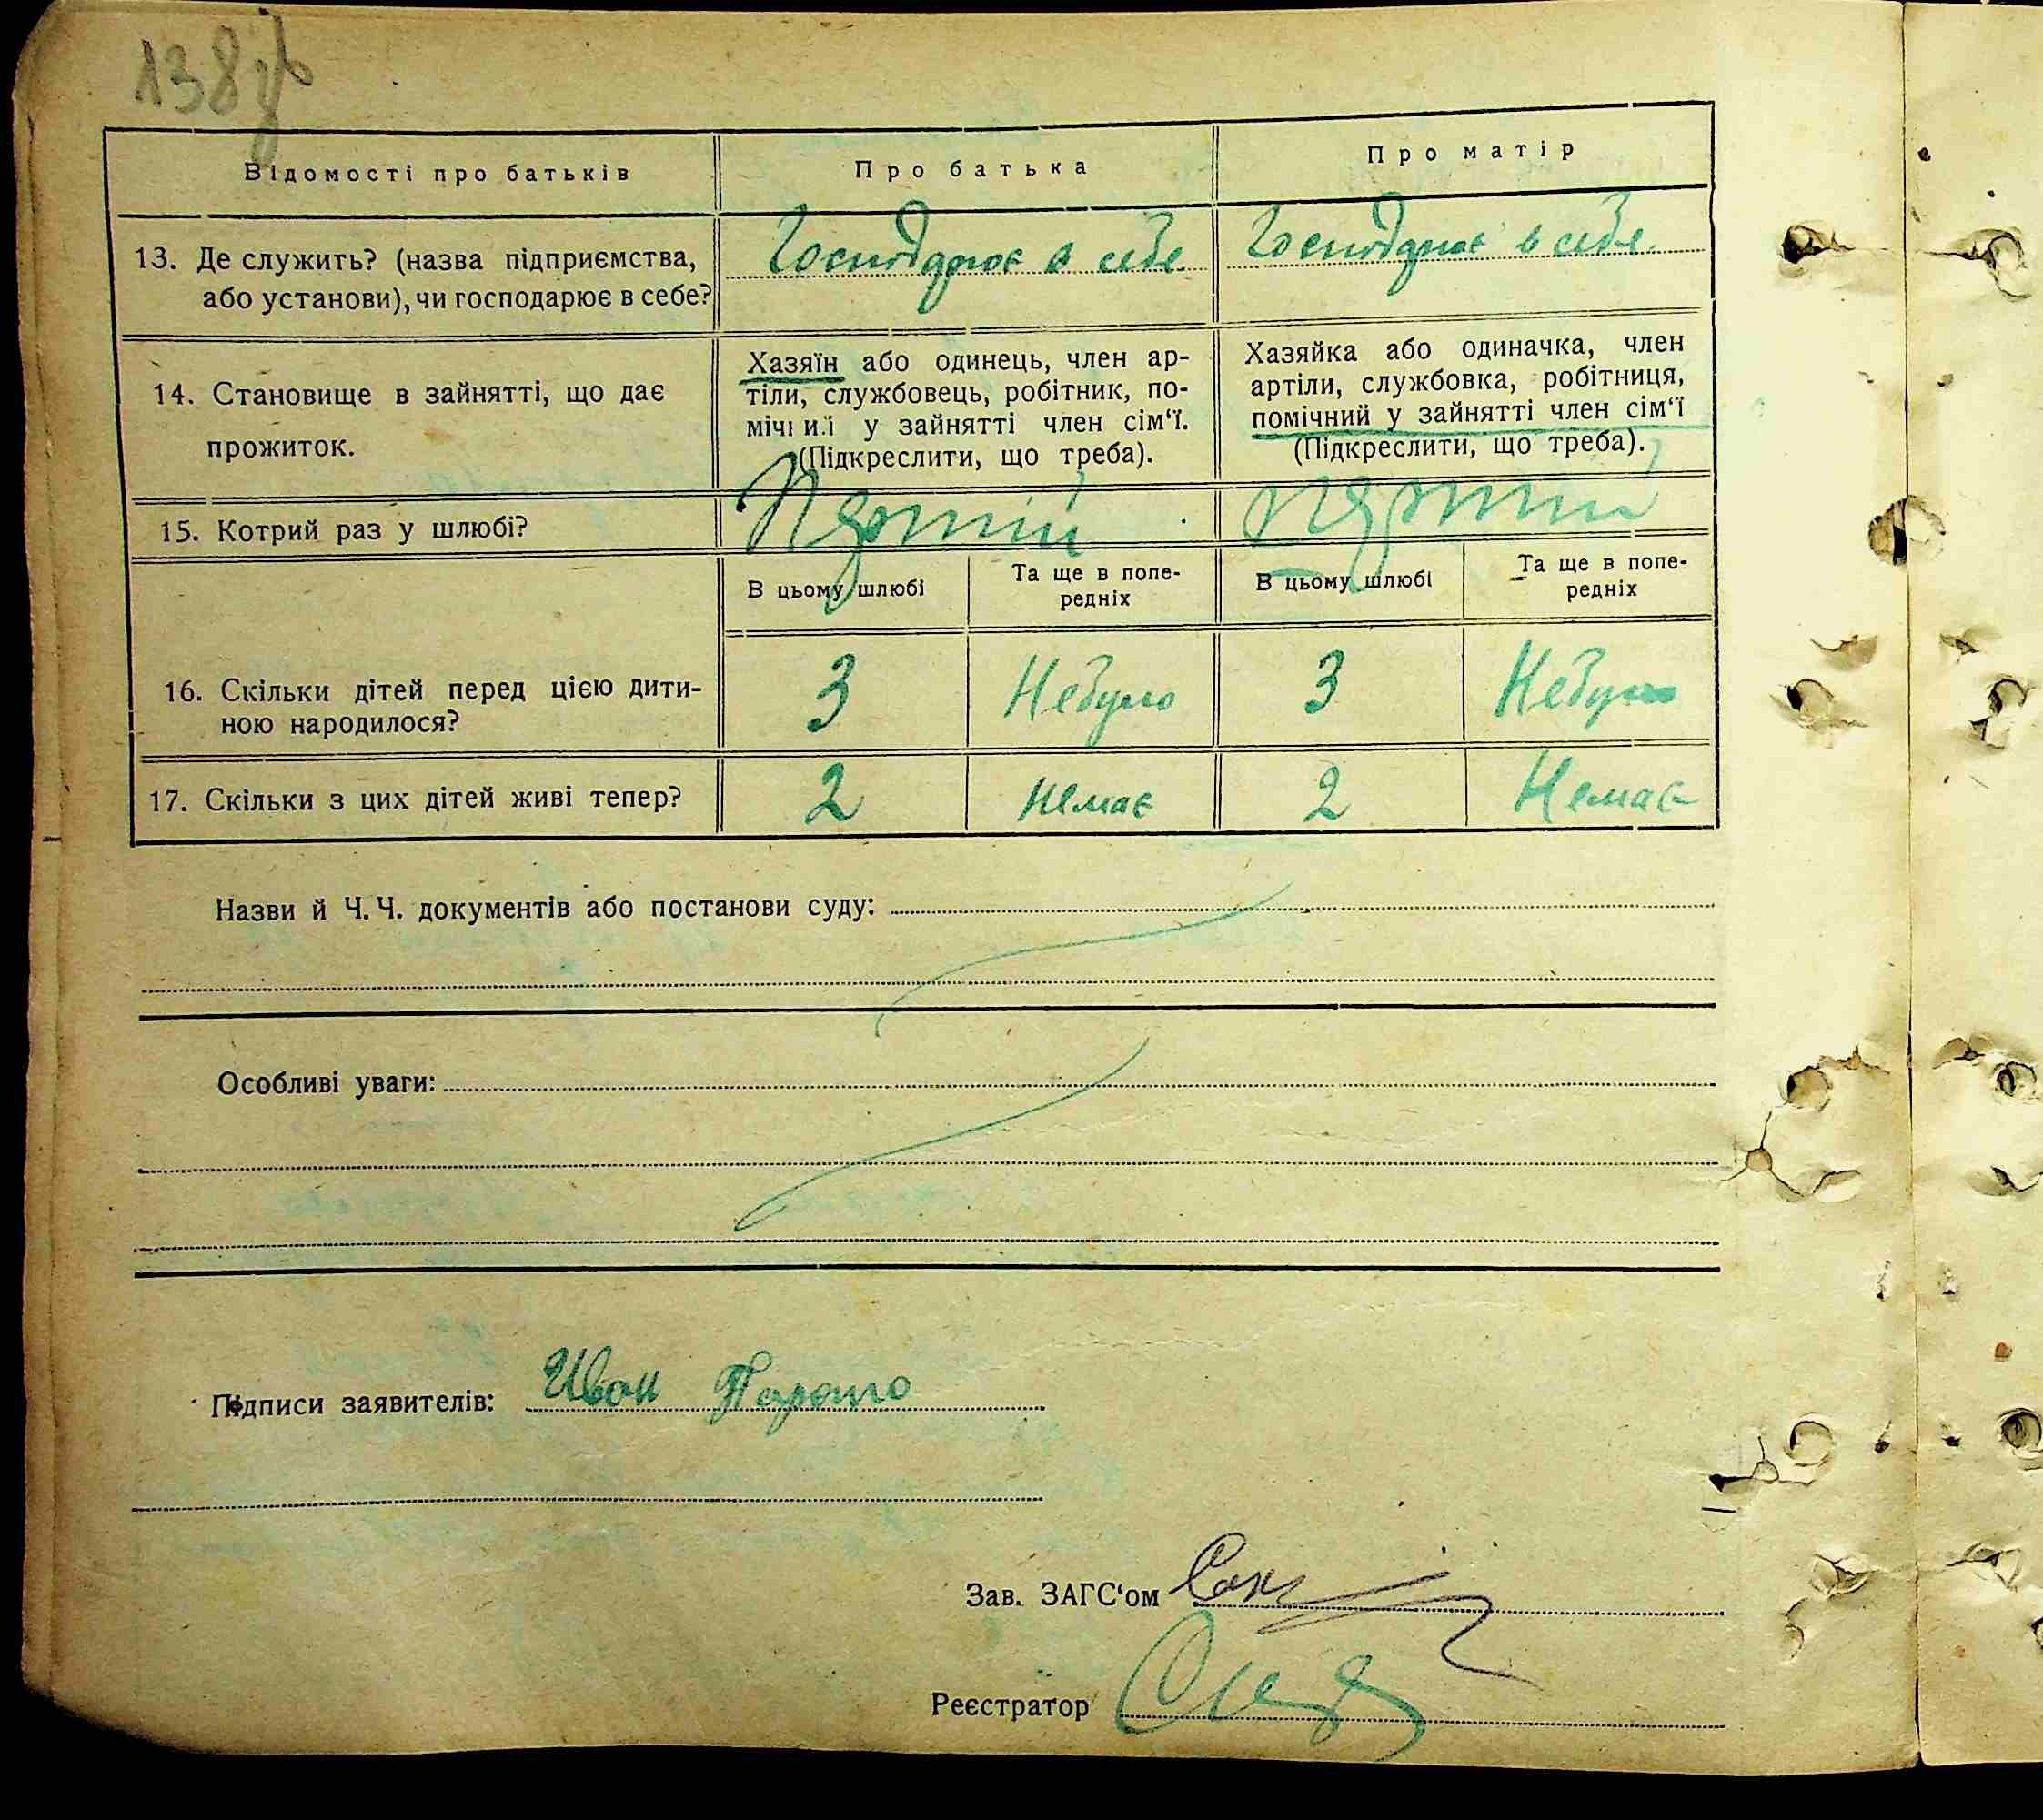 138зв
Відомості про батьків
Про батька
Про матір
13. Де служить? (назва підприємства,
або установи), чи господарює в себе?
Господарює в себе
Господарює в себе
14. Становище в зайнятті, що дає
прожиток.
Хазяїн або одинець, член ар-
тіли, службовець, робітник, по-
мічний у зайнятті член сім'ї.
(Підкреслити, що треба).
Хазяйка або одиначка, член
артіли, службовка, робітниця,
помічний у зайнятті член сім'ї
(Підкреслити, що треба).
15. Котрий раз у шлюбі?
Перший
Перший
В цьому шлюбі
Та ще в попе-
редніх
В цьому шлюбі
Та ще в попе-
редніх
16. Скільки дітей перед цією дити-
ною народилося?
3
Небуло
3
Небуло
17. Скільки з цих дітей живі тепер?
2
Немає
2
Немає
Назви й Ч. Ч. документів або постанови суду:
Особливі уваги:
Підписи заявителів: Иван
Зав. ЗАГС'ом
Реєстратор